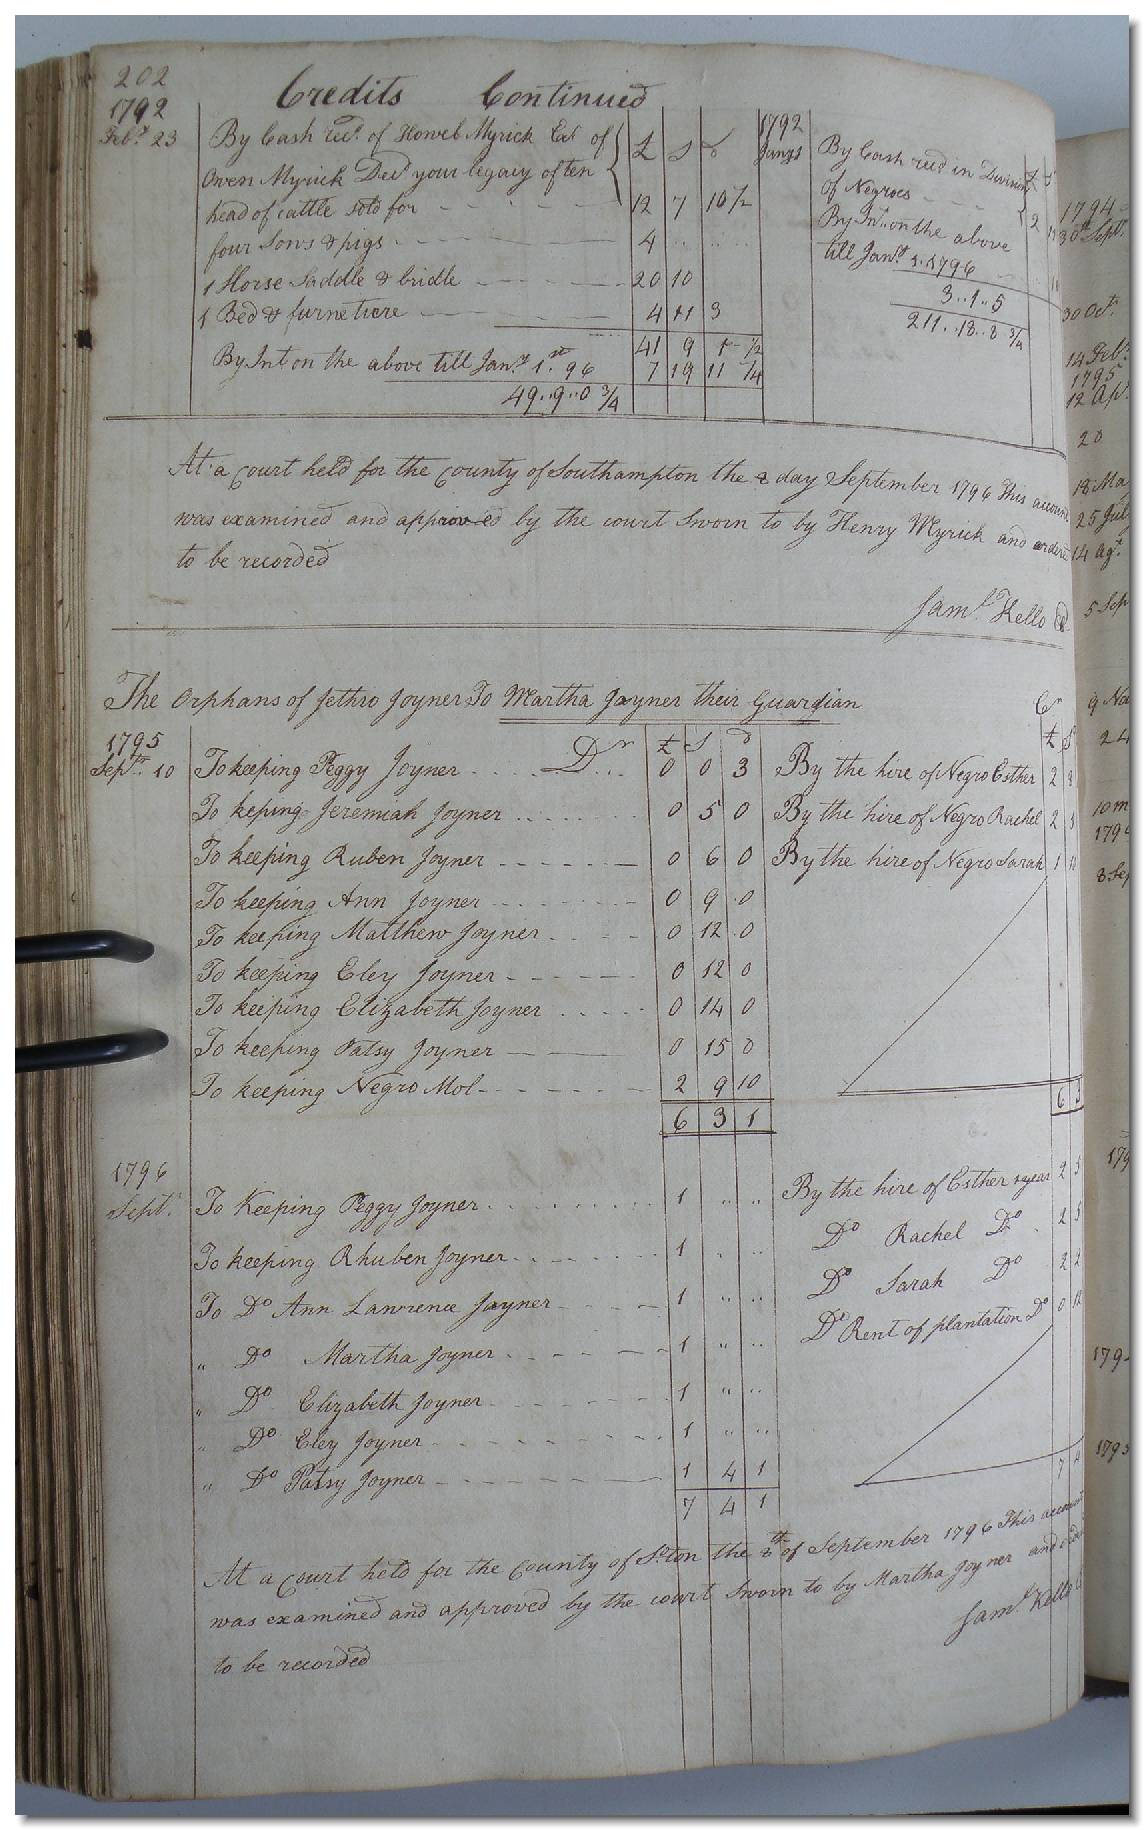 202
Credits Continued
1792
Feb.y 23
By Cash rec.d of Howel Myrick Exr of
Owen Myrick Dec.d your legacy of ten
head of cattle sold for 12 7 10 1/2
four Sows & pigs 4
1 Horse Saddle & bridle 20 10
1 Bed & furneture 4 11 3
41 9 1 1/2
By Int on the above till Jan.y 1.st 96 7 19 11 1/4
49..9..0 3/4
£ S d
1792
By Cash rec.d in Division
of Negroes 2
By In.t on the above
till Jan.y 1.. 1796
3..1..5
211..18..8 3/4
At a court held for the county of Southampton the 8 day September 1796 This account
was examined and approved by the court Sworn to by Henry Myrick and ordered
to be recorded
Sam.l Kello
The Orphans of Jethro Joyner To Martha Joyner their Guardian
1795
Sept.r 10
Dr £ S d
To keeping Peggy Joyner 0 0 3
To keping Jeremiah Joyner 0 5 0
To keeping Ruben Joyner 0 6 0
To keeping Ann Joyner 0 9 0
To keeping Matthew Joyner 0 12 0
To keeping Eley Joyner 0 12 0
To keeping Elizabeth Joyner 0 14 0
To keeping Patsy Joyner 0 15 0
To keeping Negro Mol 2 9 10
6 3 1
Cr
£ S
By the hire of Negro Esther 2
By the hire of Negro Rachel 2
By the hire of Negro Sarah 1
6 3
1796
Sept.r
To Keeping Peggy Joyner 1 " "
To keeping Rhuben Joyner 1 " "
To Do Ann Lawrence Joyner 1 " "
" Do Martha Joyner 1 " "
" Do Elizabeth Joyner 1 " "
" Do Eley Joyner 1 " "
" Do Patsy Joyner 1 4 1
7 4 1
By the hire of Esther 1 year 2 5
Do Rachel Do 2 5
Do Sarah Do 2 2
Do Rent of plantation Do 0 12
7 4
At a court held for the County of S.ton the 8th of September 1796 This account
was examined and approved by the court Sworn to by Martha Joyner and
to be recorded
Sam.l Kello
1794
30th Sept.r
30 Oct.
14 Feb.
1795
12 Ap.
20
18 Ma
25 Jul
14 Ag.t
5 Sep
9 No
24
10 m
179
8 Sep
179
179
179